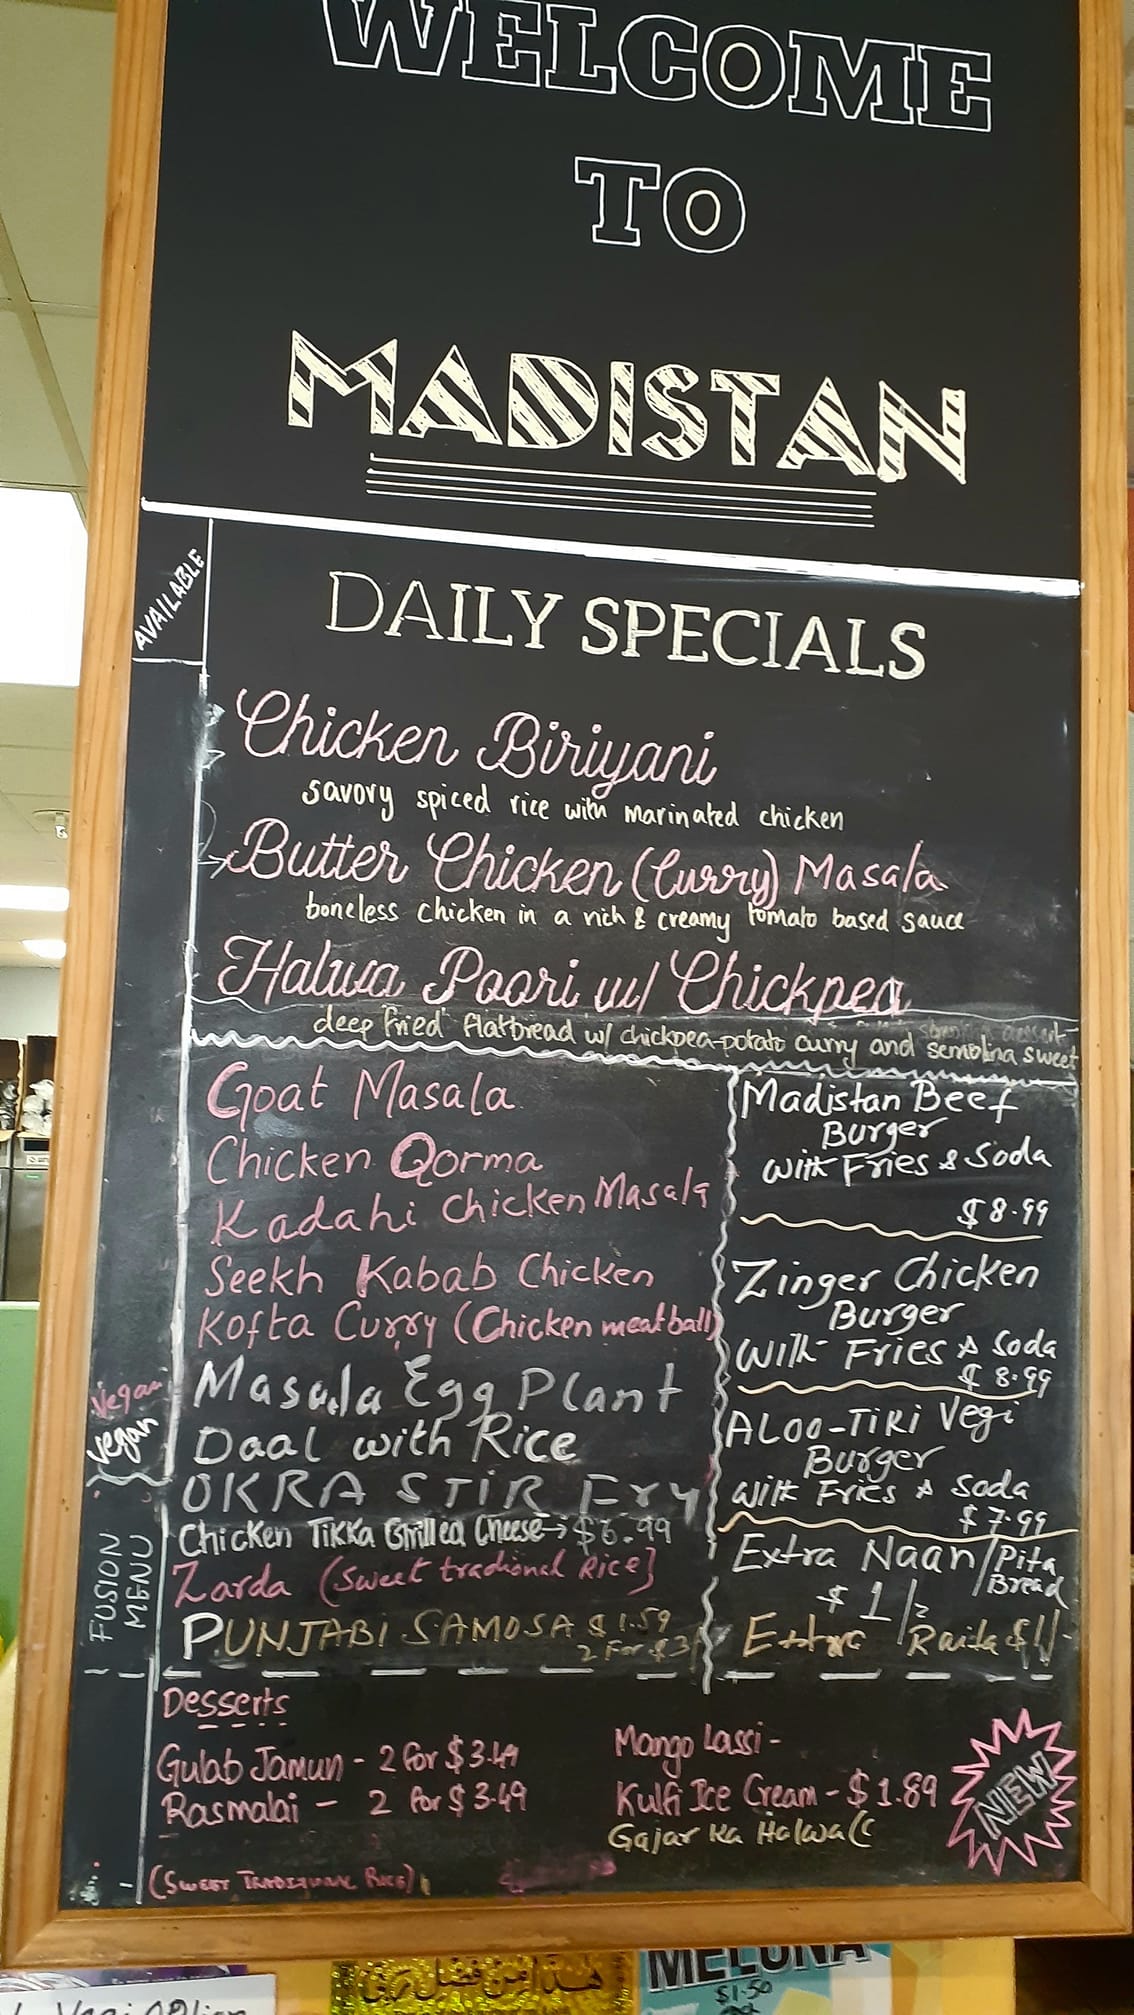 WELCOME
TO
MADISTAN
AVAILABLE
DAILY SPECIALS
Chicken Biriyani
savory spiced rice with marinated chicken
Butter Chicken (Curry) Masala
boneless chicken in a rich & creamy tomato based sauce
Halwa Poori w/ Chickpea
deep fried flatbread w/ chickpea-potato curry and semolina sweet
Goat Masala
Chicken Qorma
Kadahi Chicken Masala
Seekh Kabab Chicken
Kofta Curry (Chicken meatball)
Vegan
Vegan
Masala Egg Plant
Daal with Rice
OKRA STIR Fry
FUSION
MENU
Chicken Tikka Grilled Cheese → $6.99
Zarda (Sweet tradional Rice)
PUNJABI SAMOSA $1.59
2 For $3
Madistan Beef
Burger
with Fries & Soda
$8.99
Zinger Chicken
Burger
with Fries & Soda
$8.99
ALOO-TIKI Vegi
Burger
with Fries & Soda
$7.99
Extra Naan/Pita
Bread
$1/2
Extra Raita $1/-
Desserts
Gulab Jamun - 2 for $3.49
Rasmalai - 2 for $3.49
Mango Lassi -
Kulfi Ice Cream - $1.89
Gajar Ka Halwa
NEW
هذا من فضل ربي
MELONA
$1.50